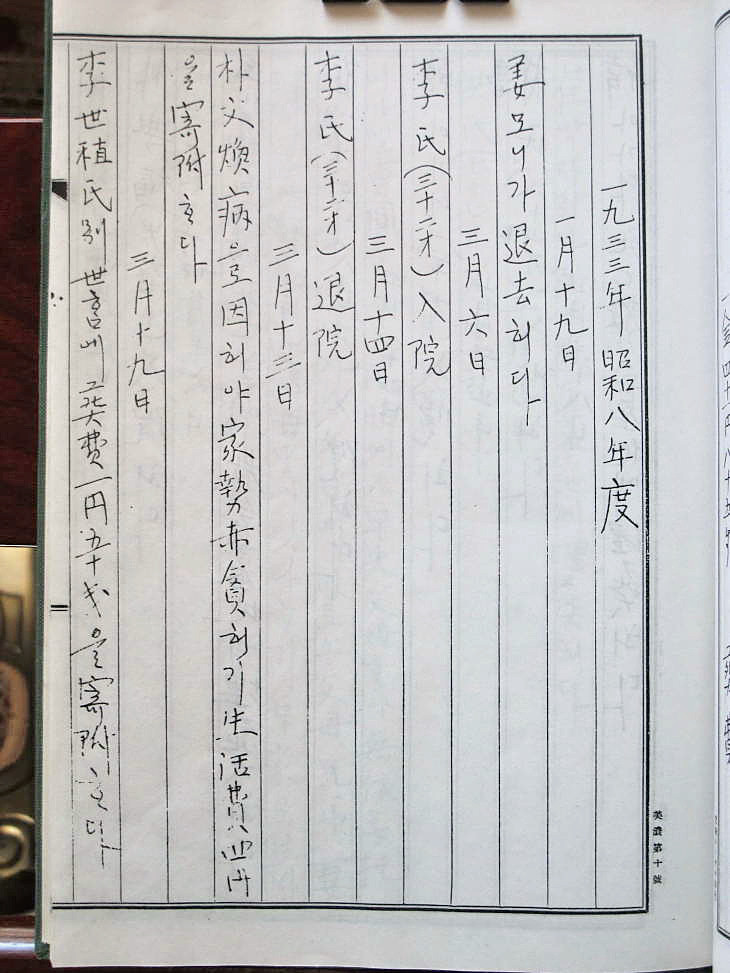 一九三三年 昭和八年度
一月十九日
姜모니가 退去하다
三月六日
李氏(三十二才)入院
三月十四日
李氏(三十二才)退院
三月十三日
朴文煥病으로因하야家勢赤貧하기生活費四円
을寄附하다
三月十九日
李世稙氏別世 葬費一円五十戋을寄附하다
美濃第十號